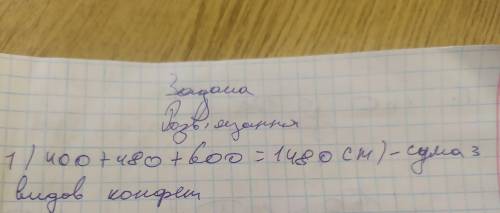 Задача
Розв'язання
1) 400+480+600=1480 (т) - сума 3
видов конфет